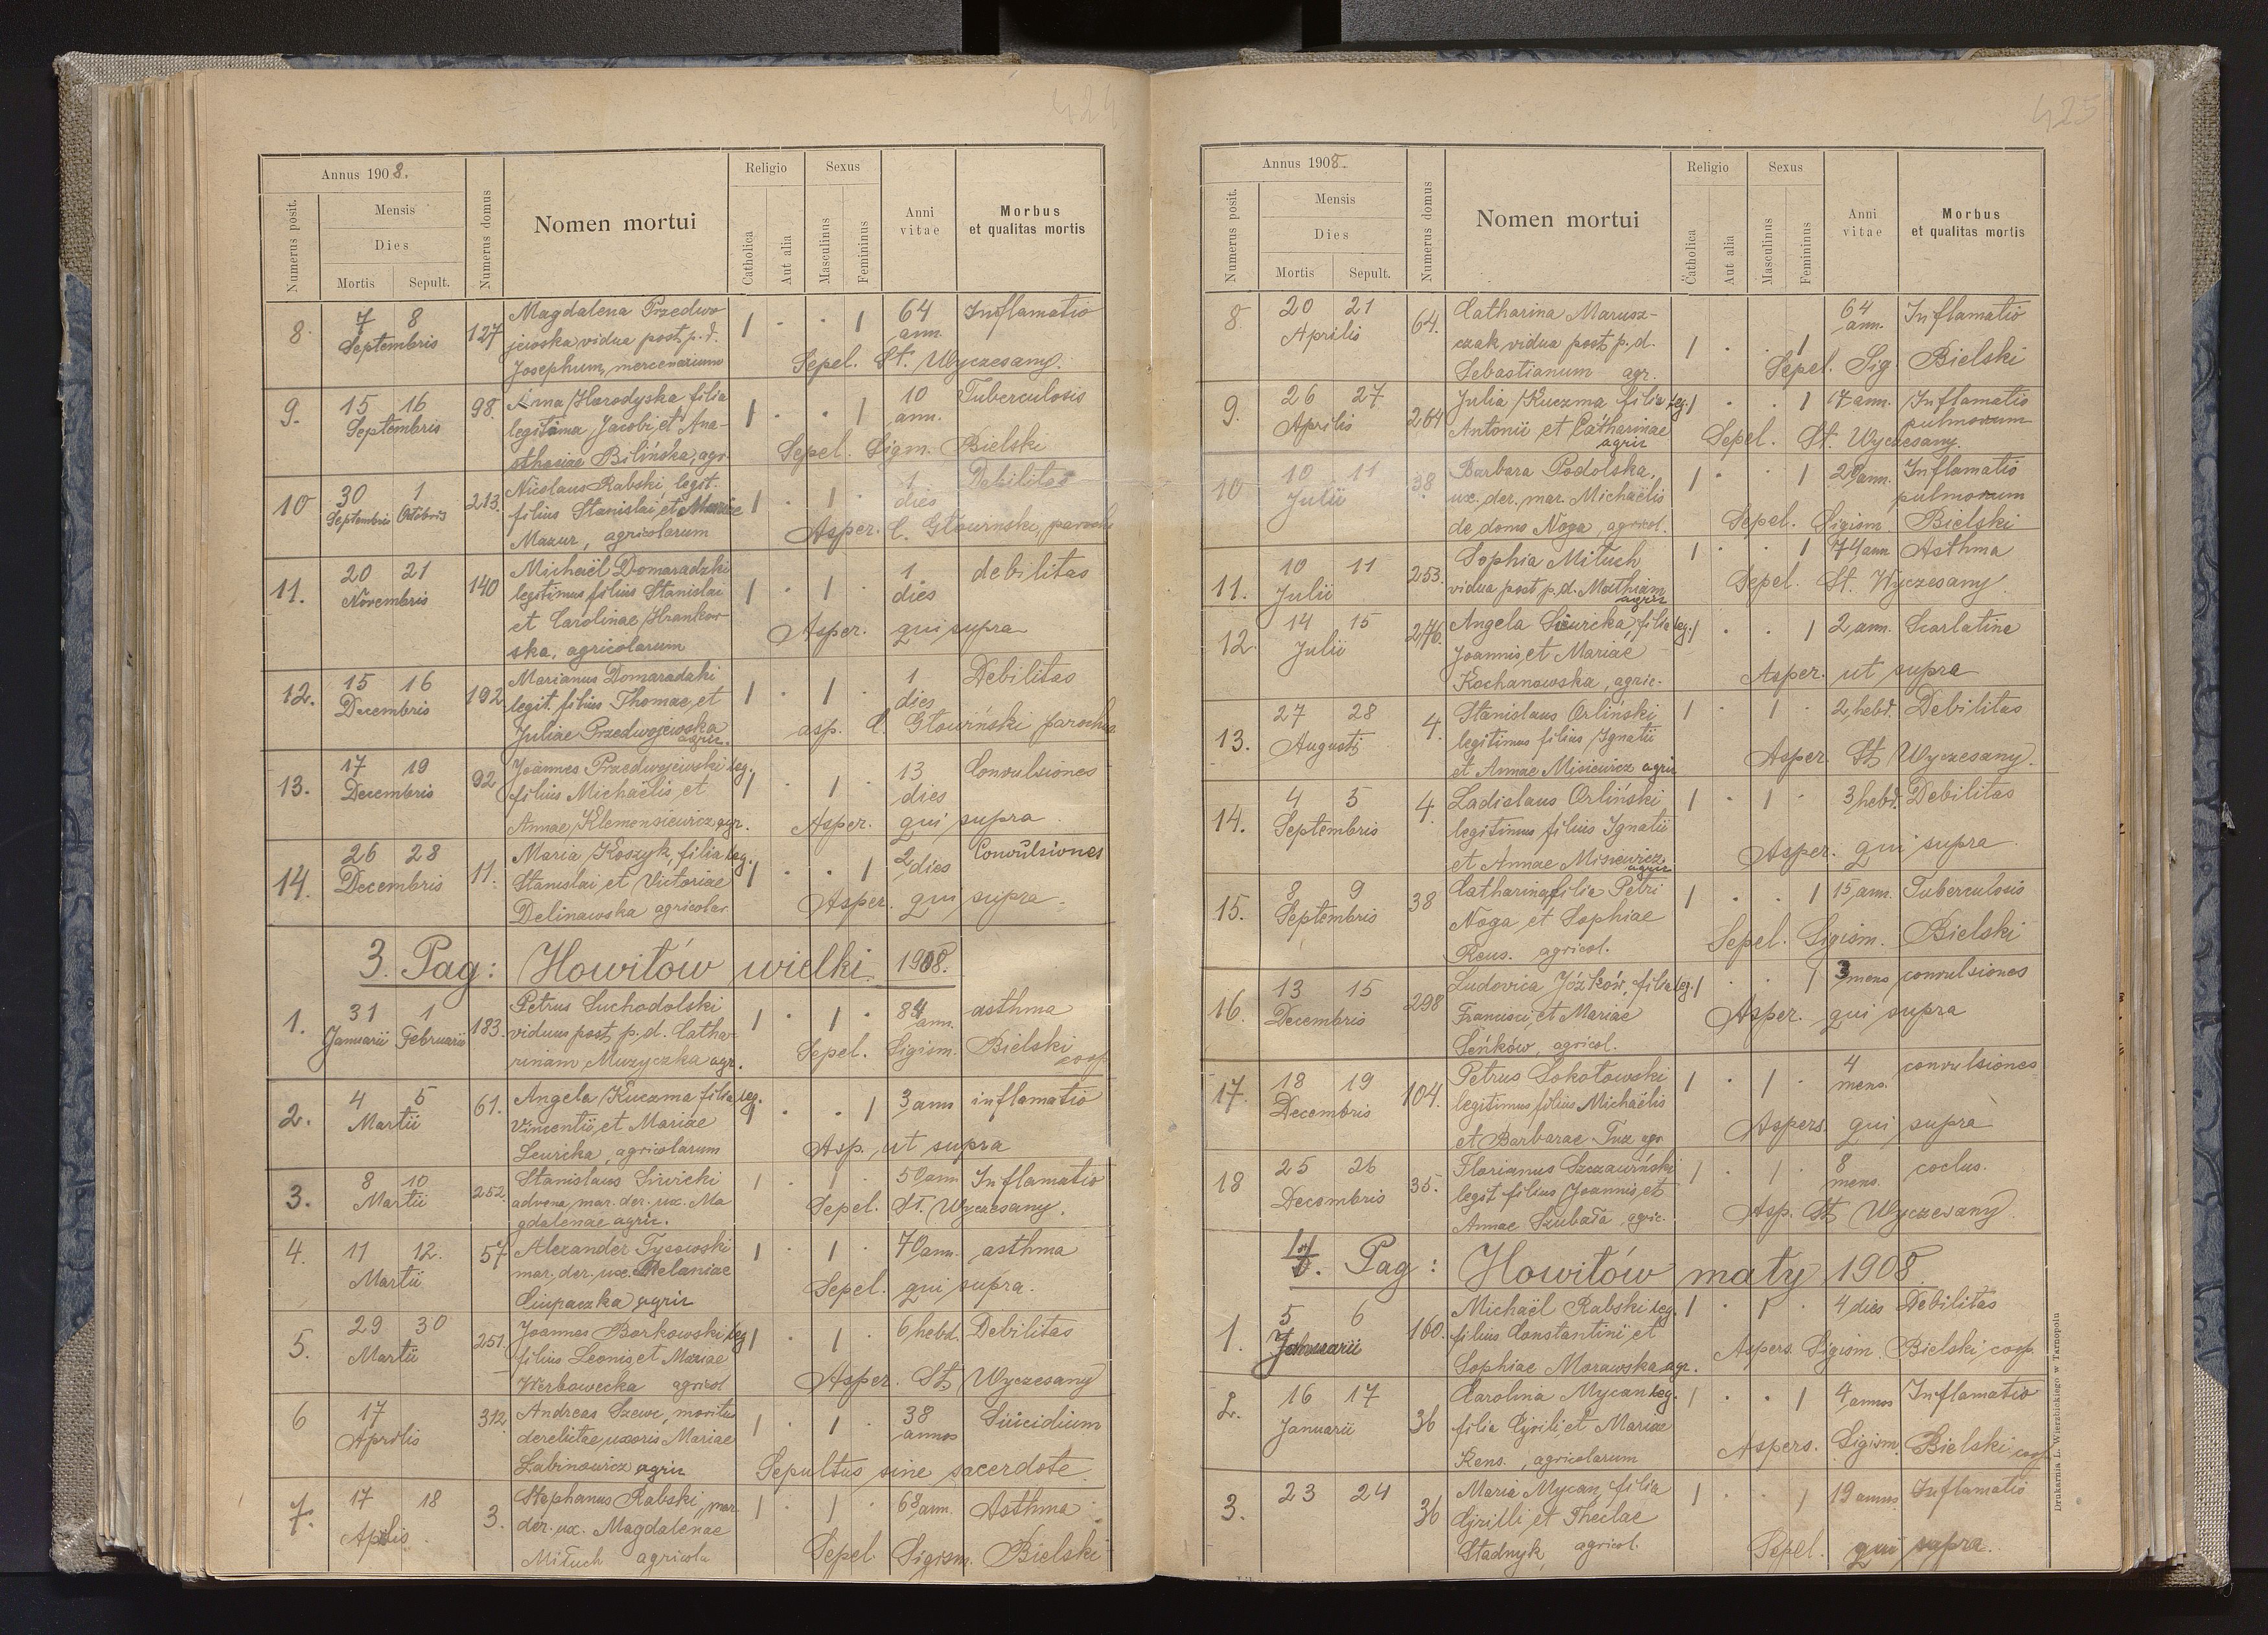 424
Annus 1908.
Numerus posit.
Mensis
Dies
Mortis Sepult.
Numerus domus
Nomen mortui
Religio
Catholica
Aut alia
Sexus
Masculinus
Femininus
Anni vitae
Morbus et qualitas mortis
8. 7 8 Septembris 127 Magdalena Przedwo 1 · · 1 64 ann. Inflamatio
jewska vidua post p. d.
Josephum, mercenarium Sepel. St. Wyczesany.
9. 15 16 Septembris 98. Anna Horodyska filia 1 · · 1 10 ann. Tuberculosis
legitima Jacobi et Ana-
sthasiae Bilińska, agr. Sepel. Sigm. Bielski
10 30 Septembris 1 Octobris 213. Nicolaus Rabski, legit. 1 · 1 · 1 dies Debilitas
filius Stanislai et Mariae
Mazur, agricolarum Asper. C. Głowiński, parochus
11. 20 21 Novembris 140 Michaël Domaradzki 1 · 1 · 1. dies debilitas
legitimus filius Stanislai
et Carolinae Hrankow
ska, agricolarum Asper. qui supra
12. 15 16 Decembris 192 Marianus Domaradzki 1 · 1 · 1 dies Debilitas
legit. filius Thomae et
Juliae Przedwojewska agric. asp. C. Głowiński parochus
13. 17 19 Decembris 92 Joannes Przedwojewski leg. 1 · 1 · 13 dies Convulsiones
filius Michaëlis et
Annae Klemensiewicz agr. Asper. qui supra
14. 26 28 Decembris 11. Maria Koszyk, filia leg. 1 · · 1 2 dies Convulsiones
Stanislai et Victoriae
Delinawska agricolar. Asper. qui supra.
3. Pag: Howiłów wielki 1908.
1. 31 Januarii 1 Februarii 183. Petrus Suchodolski 1 · 1 · 84 ann. asthma
viduus post p. d. Catha-
rinam Muzyczka agr. Sepel. Sigism. Bielski coop.
2. 4 5 Martii 61. Angela Kuczma filia leg. 1 · · 1 3 ann inflamatio
Vincentii et Mariae
Sciurcka, agricolarum Asp., ut supra
3. 8 10 Martii 252. Stanislaus Siwicki 1 · 1 · 50 ann Inflamatio
advena, mar. der. ux. Ma
gdalenae agric. Sepel. St. Wyczesany.
4. 11 12. Martii 57 Alexander Tysowski 1 · 1 · 70 ann. asthma
mar. der. ux. Melaniae
Ciupaczka agric Sepel. qui supra.
5. 29 30 Martii 251. Joannes Borkowski leg 1 · 1 · 6 hebd. Debilitas
filius Leonis et Mariae
Werbowecka agricol Asper. St. Wyczesany
6 17 Aprilis 312. Andreas Szewc, maritus 1 · 1 · 38 annos Suicidium
derelictae uxoris Mariae
Labinowicz agric Sepultus sine sacerdote.
7. 17 18 Aprilis 3. Stephanus Rabski, mar. 1 · 1 · 68 ann. Asthma
der. ux. Magdalenae
Mituch agricola Sepel. Sigism. Bielski
425
Annus 1908.
Numerus posit.
Mensis
Dies
Mortis Sepult.
Numerus domus
Nomen mortui
Religio
Catholica
Aut alia
Sexus
Masculinus
Femininus
Anni vitae
Morbus et qualitas mortis
8. 20 21 Aprilis 64. Catharina Marusz- 1 · · 1 64 ann. Inflamatio
czak, vidua post p. d.
Sebastianum agr. Sepel. Sig. Bielski
9. 26 27 Aprilis 264 Julia Kuczma filia leg. 1 · · 1 17 ann. Inflamatio pulmonum
Antonii et Catharinae agric Sepel. St. Wyczesany.
10 10 11 Julii 38. Barbara Podolska, 1 · · 1 28 ann. Inflamatio pulmonum
ux. der. mar. Michaëlis
de domo Noga, agricol. Sepel. Sigism. Bielski
11. 10 11 Julii 253. Sophia Mituch 1 · · 1 74 ann Asthma
vidua post p. d. Mathiam agric Sepel. St. Wyczesany
12. 14 15 Julii 246. Angela Sciurcka, filia leg. 1 · · 1 2 ann. Scarlatina
Joannis et Mariae
Kochanowska, agric. Asper. ut supra
13. 27 28 Augusti 4. Stanislaus Orliński 1 · 1 · 2 hebd. Debilitas
legitimus filius Ignatii
et Annae Misiewicz agric Asper. St Wyczesany.
14. 4 5 Septembris 4. Ladislaus Orliński 1 · 1 · 3 hebd. Debilitas
legitimus filius Ignatii
et Annae Misiewicz agric Asper. qui supra
15. 8 9 Septembris 38 Catharina filia Petri 1 · · 1 15 ann. Tuberculosis
Noga et Sophiae
Rens. agricol. Sepel. Sigism. Bielski
16. 13 15 Decembris 298 Ludovica Józków, filia leg. 1 · · 1 3 mens convulsiones
Francisci et Mariae
Seńków, agricol. Asper. qui supra
17. 18 19 Decembris 104. Petrus Sokołowski 1 · 1 · 4 mens. convulsiones
legitimus filius Michaëlis
et Barbarae Tuz agr Aspers. qui supra
18 25 26 Decembris 35. Florianus Szczawiński 1 · 1 · 8 mens. coclus.
legit filius Joannis et
Annae Szubała, agric. Asp. St Wyczesany
4. Pag: Howiłów mały 1908
1. 5 6 Januarii 160. Michaël Rabski leg. 1 · 1 · 4 dies Debilitas
filius Constantini et
Sophiae Morawska agr. Aspers. Sigism. Bielski, coop.
2. 16 17 Januarii 36 Carolina Mycan leg. 1 · · 1 4 annos Inflamatio
filia Cyrili et Mariae
Rens., agricolarum Aspers. Sigism. Bielski coop.
3. 23 24 36 Maria Mycan, filia 1 · · 1 19 annos Inflamatio
Cyrilli et Theclae
Stadnyk, agricol. Sepel. qui supra.
Drukarnia L. Wierzbickiego w Tarnopolu